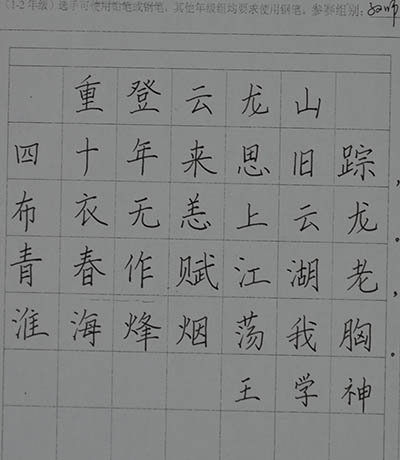 (1-2年级)选手可使用铅笔或钢笔，其他年级组均要求使用钢笔。参赛组别：教师
重登云龙山
四十年来思旧踪，
布衣无恙上云龙。
青春作赋江湖老，
淮海烽烟荡我胸。
王学神